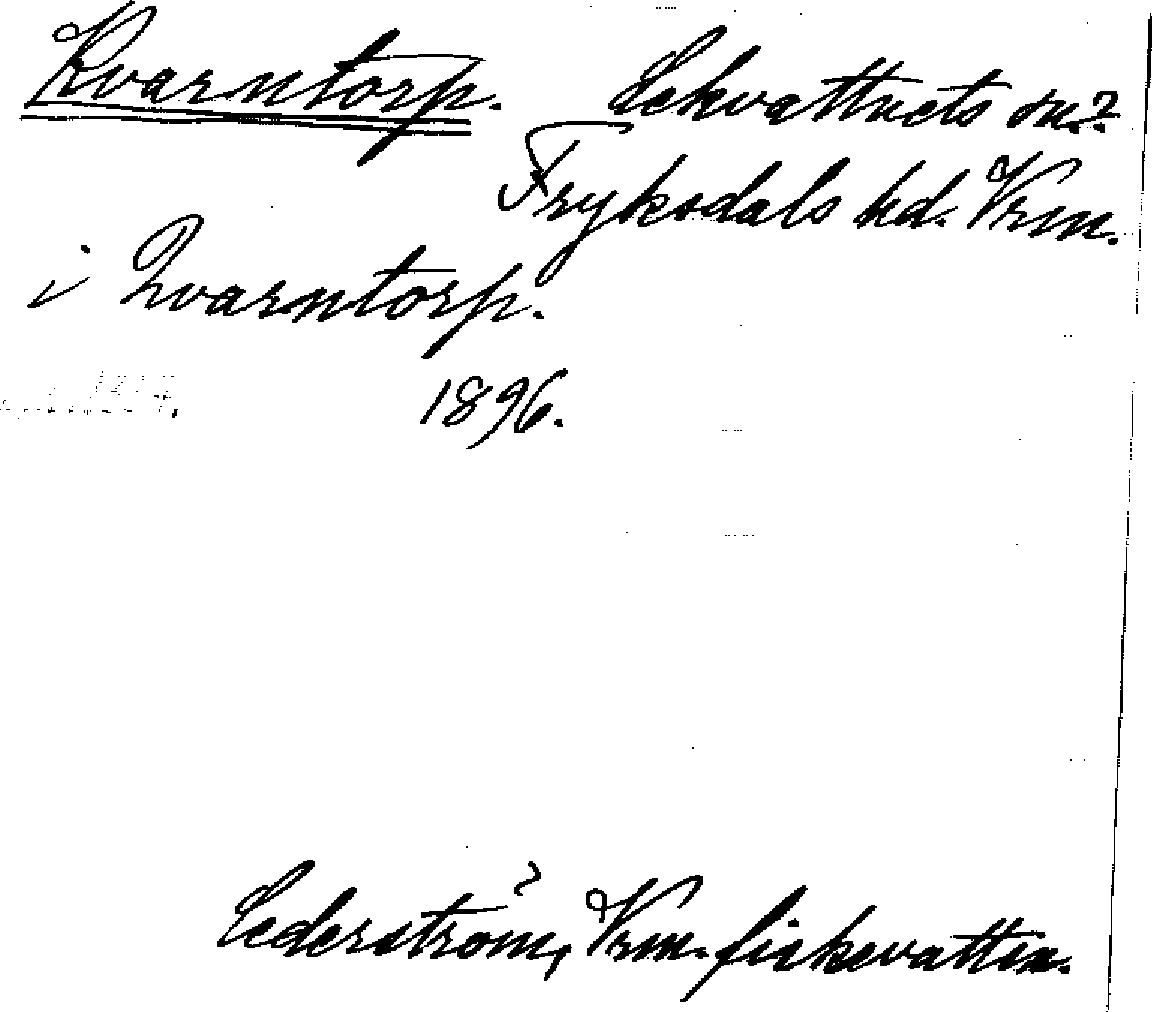 Kvarntorp. Lekvattnets sn.?
Fryksdals hd. Vrm.
i Qvarntorp.
1896.
Cederström, Vrm. fiskevatten.